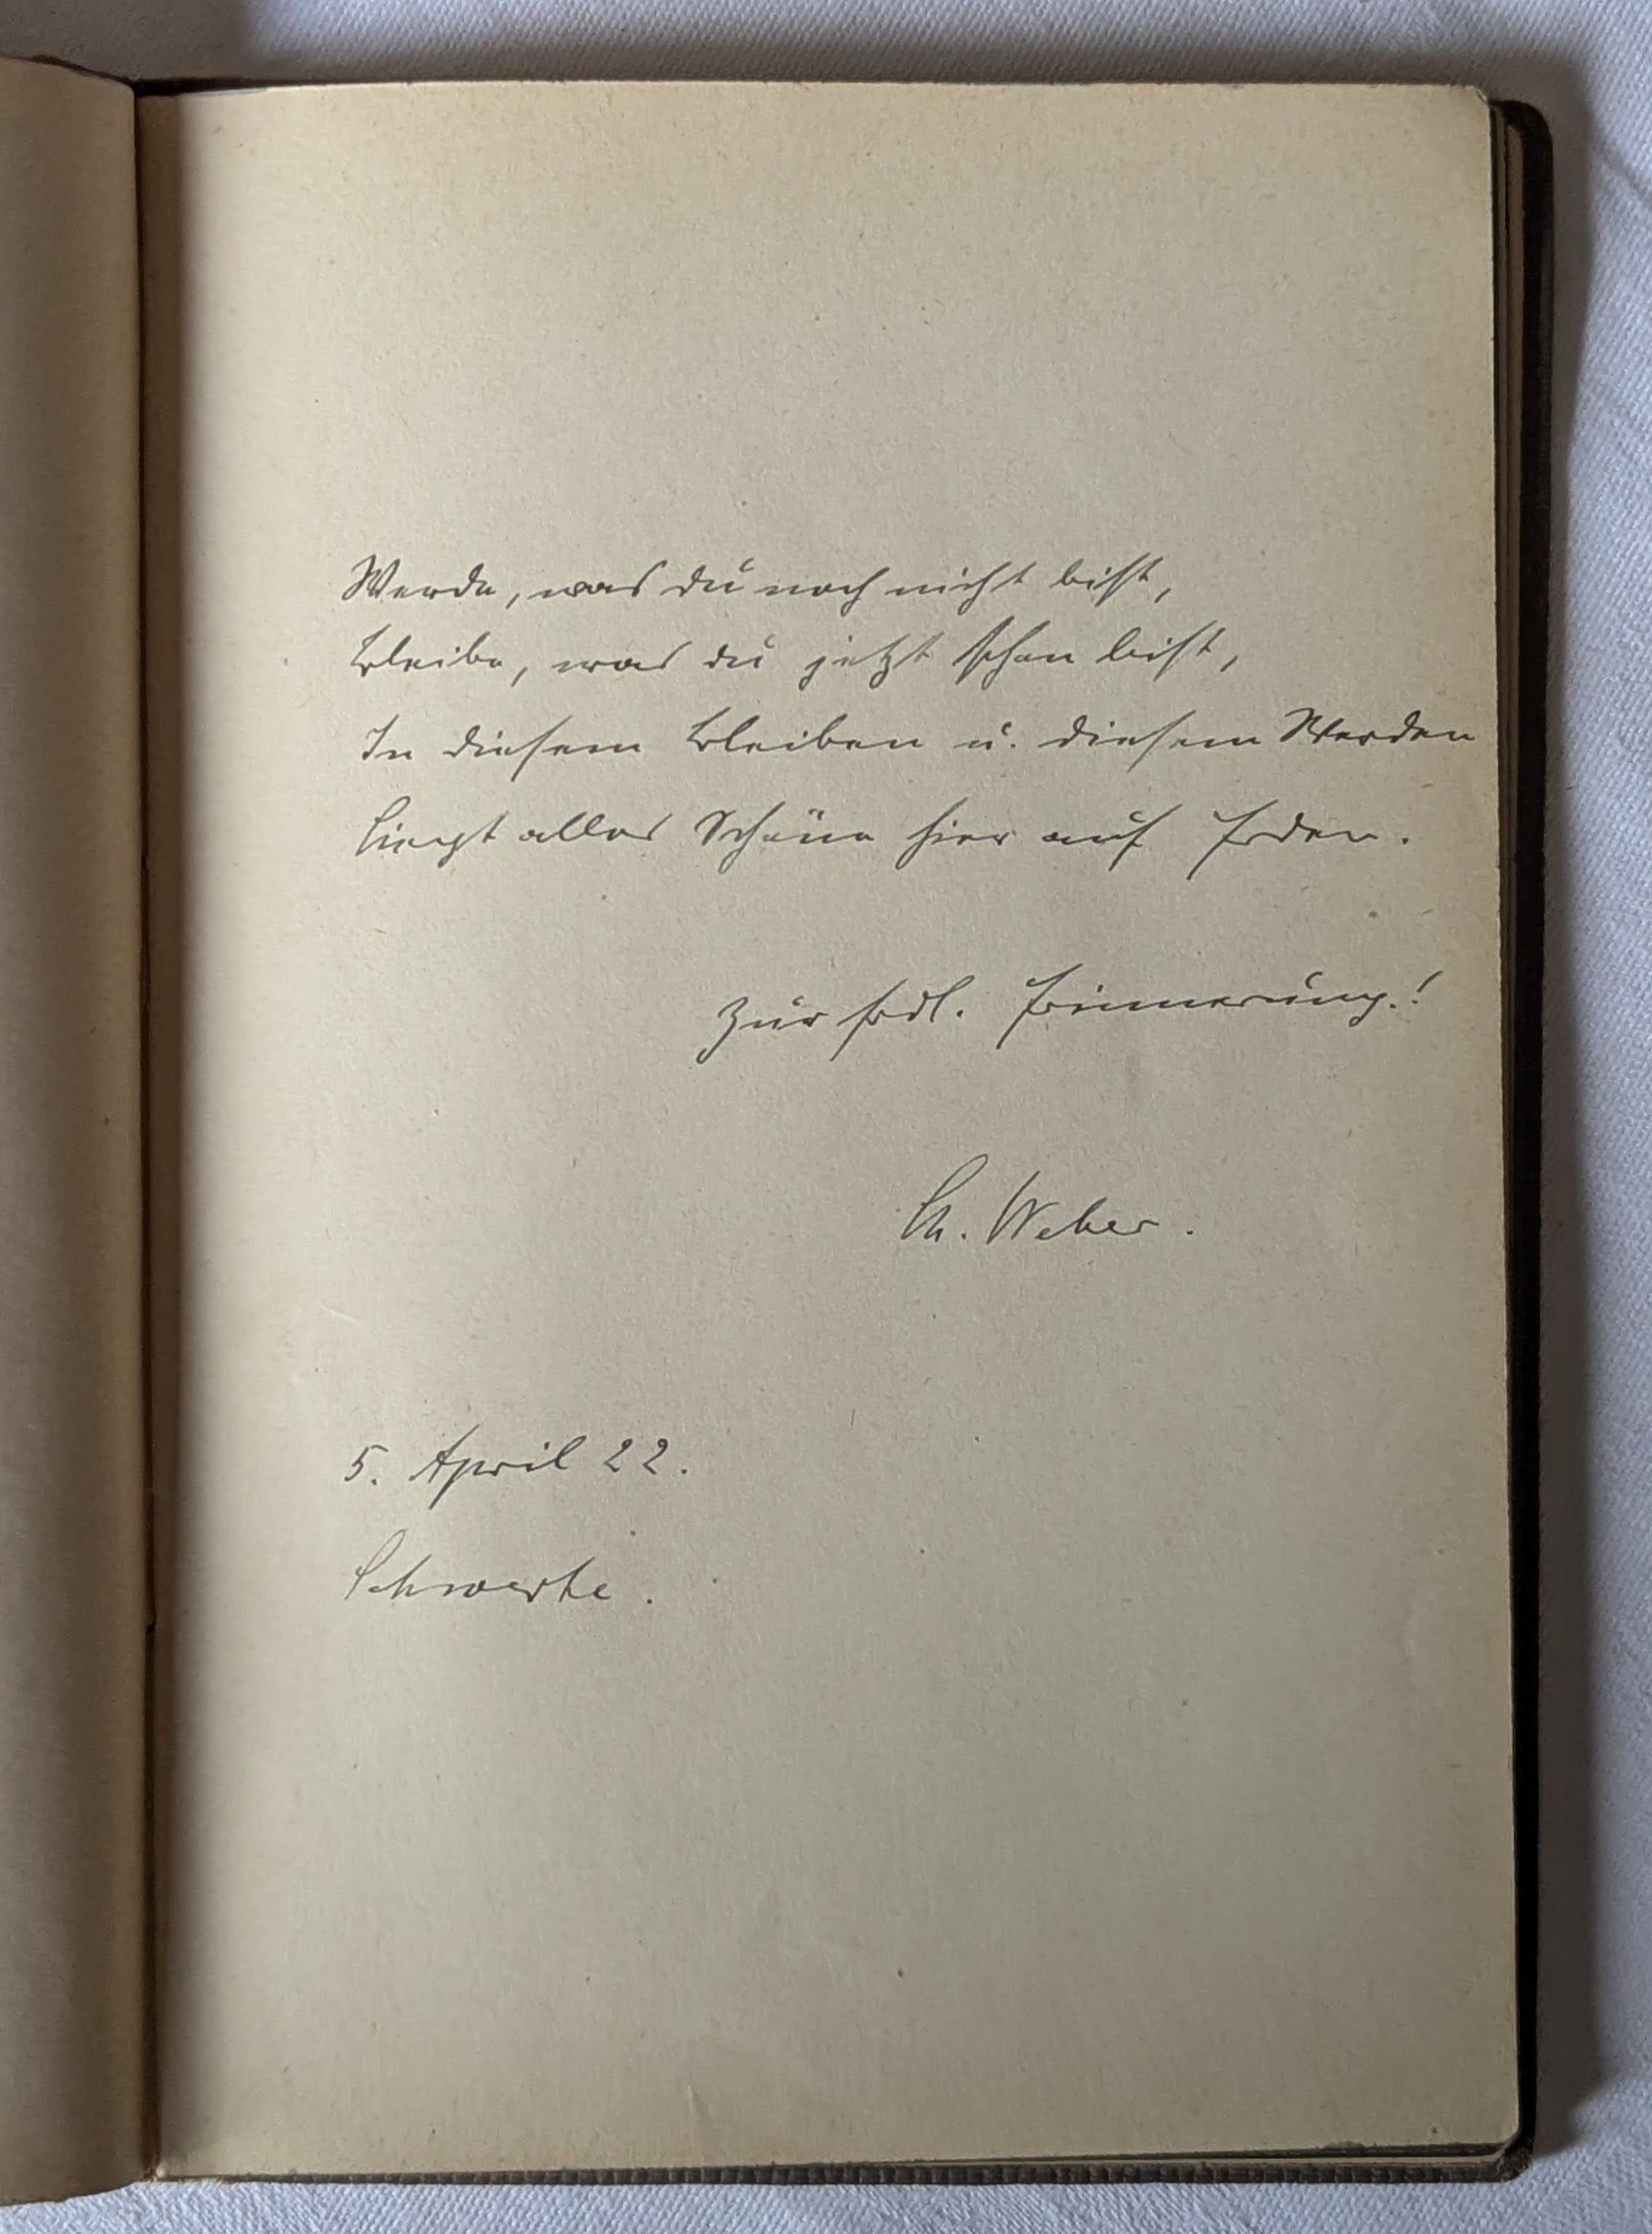 Werde, was du noch nicht bist,
bleibe, was du jetzt schon bist,
In diesem Bleiben u. diesem Werden
liegt alles Schöne hier auf Erden.
Zur frdl. Erinnerung!
Ch. Weber.
5. April 22.
Schwerte.